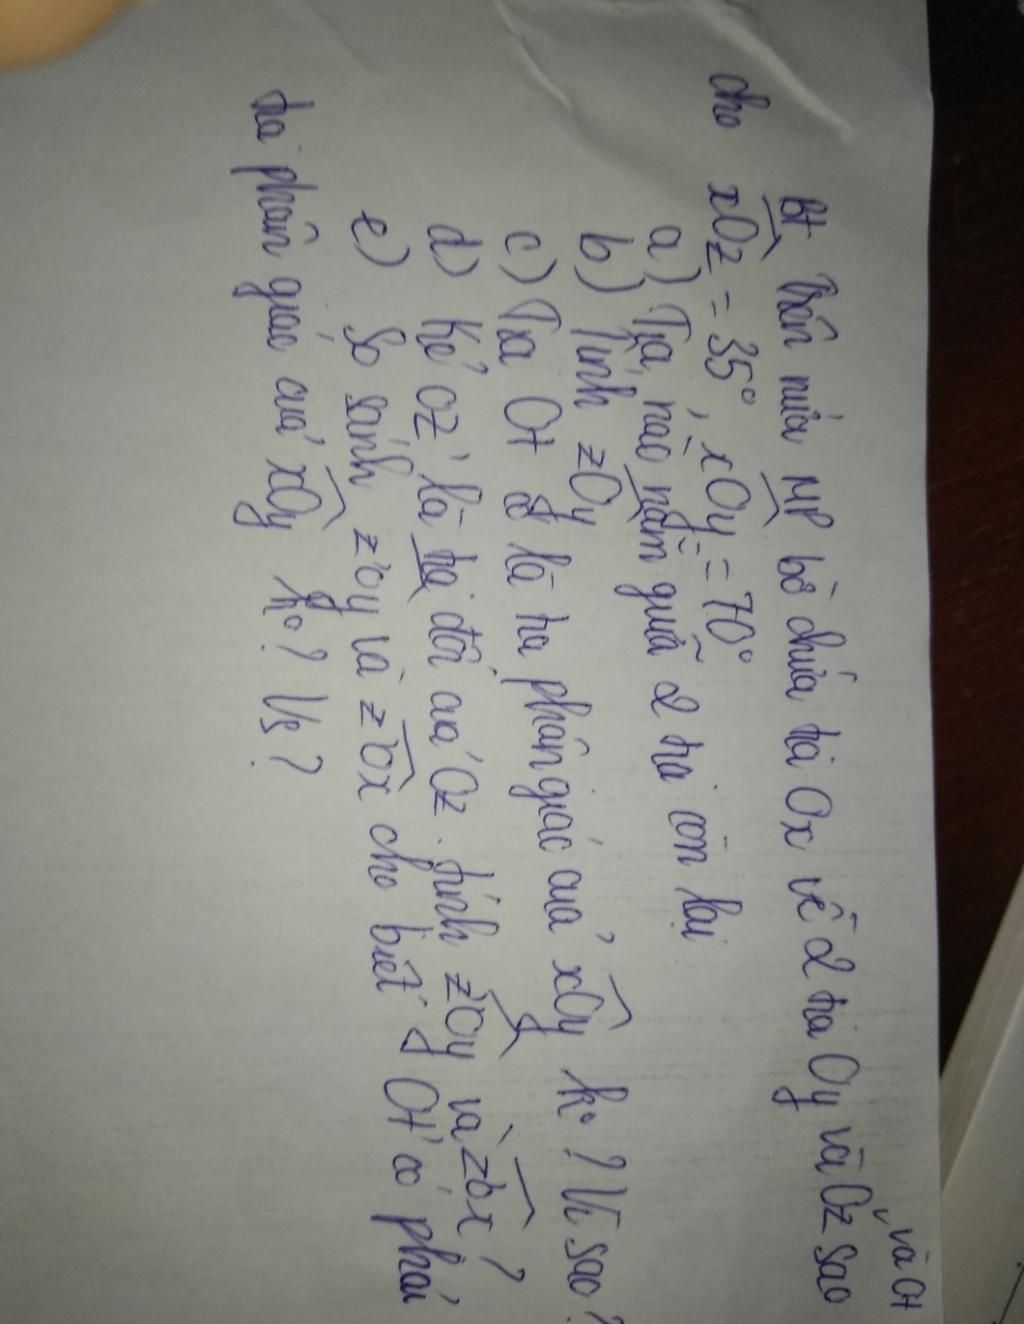 và Ot
Bt Trên nửa MP bờ chứa tia Ox vẽ 2 tia Oy và Oz sao
cho xOz = 35°, xOy = 70°
a) Tia nào nằm giữa 2 tia còn lại
b) Tính zOy
c) Tia Ot có là tia phân giác của xOy ko? Vì sao?
d) Kẻ Oz' là tia đối của Oz. tính z'Oy và z'Ox?
e) So sánh z'Oy và z'Ox cho biết Ot' có phải
tia phân giác của xOy ko? Vs?